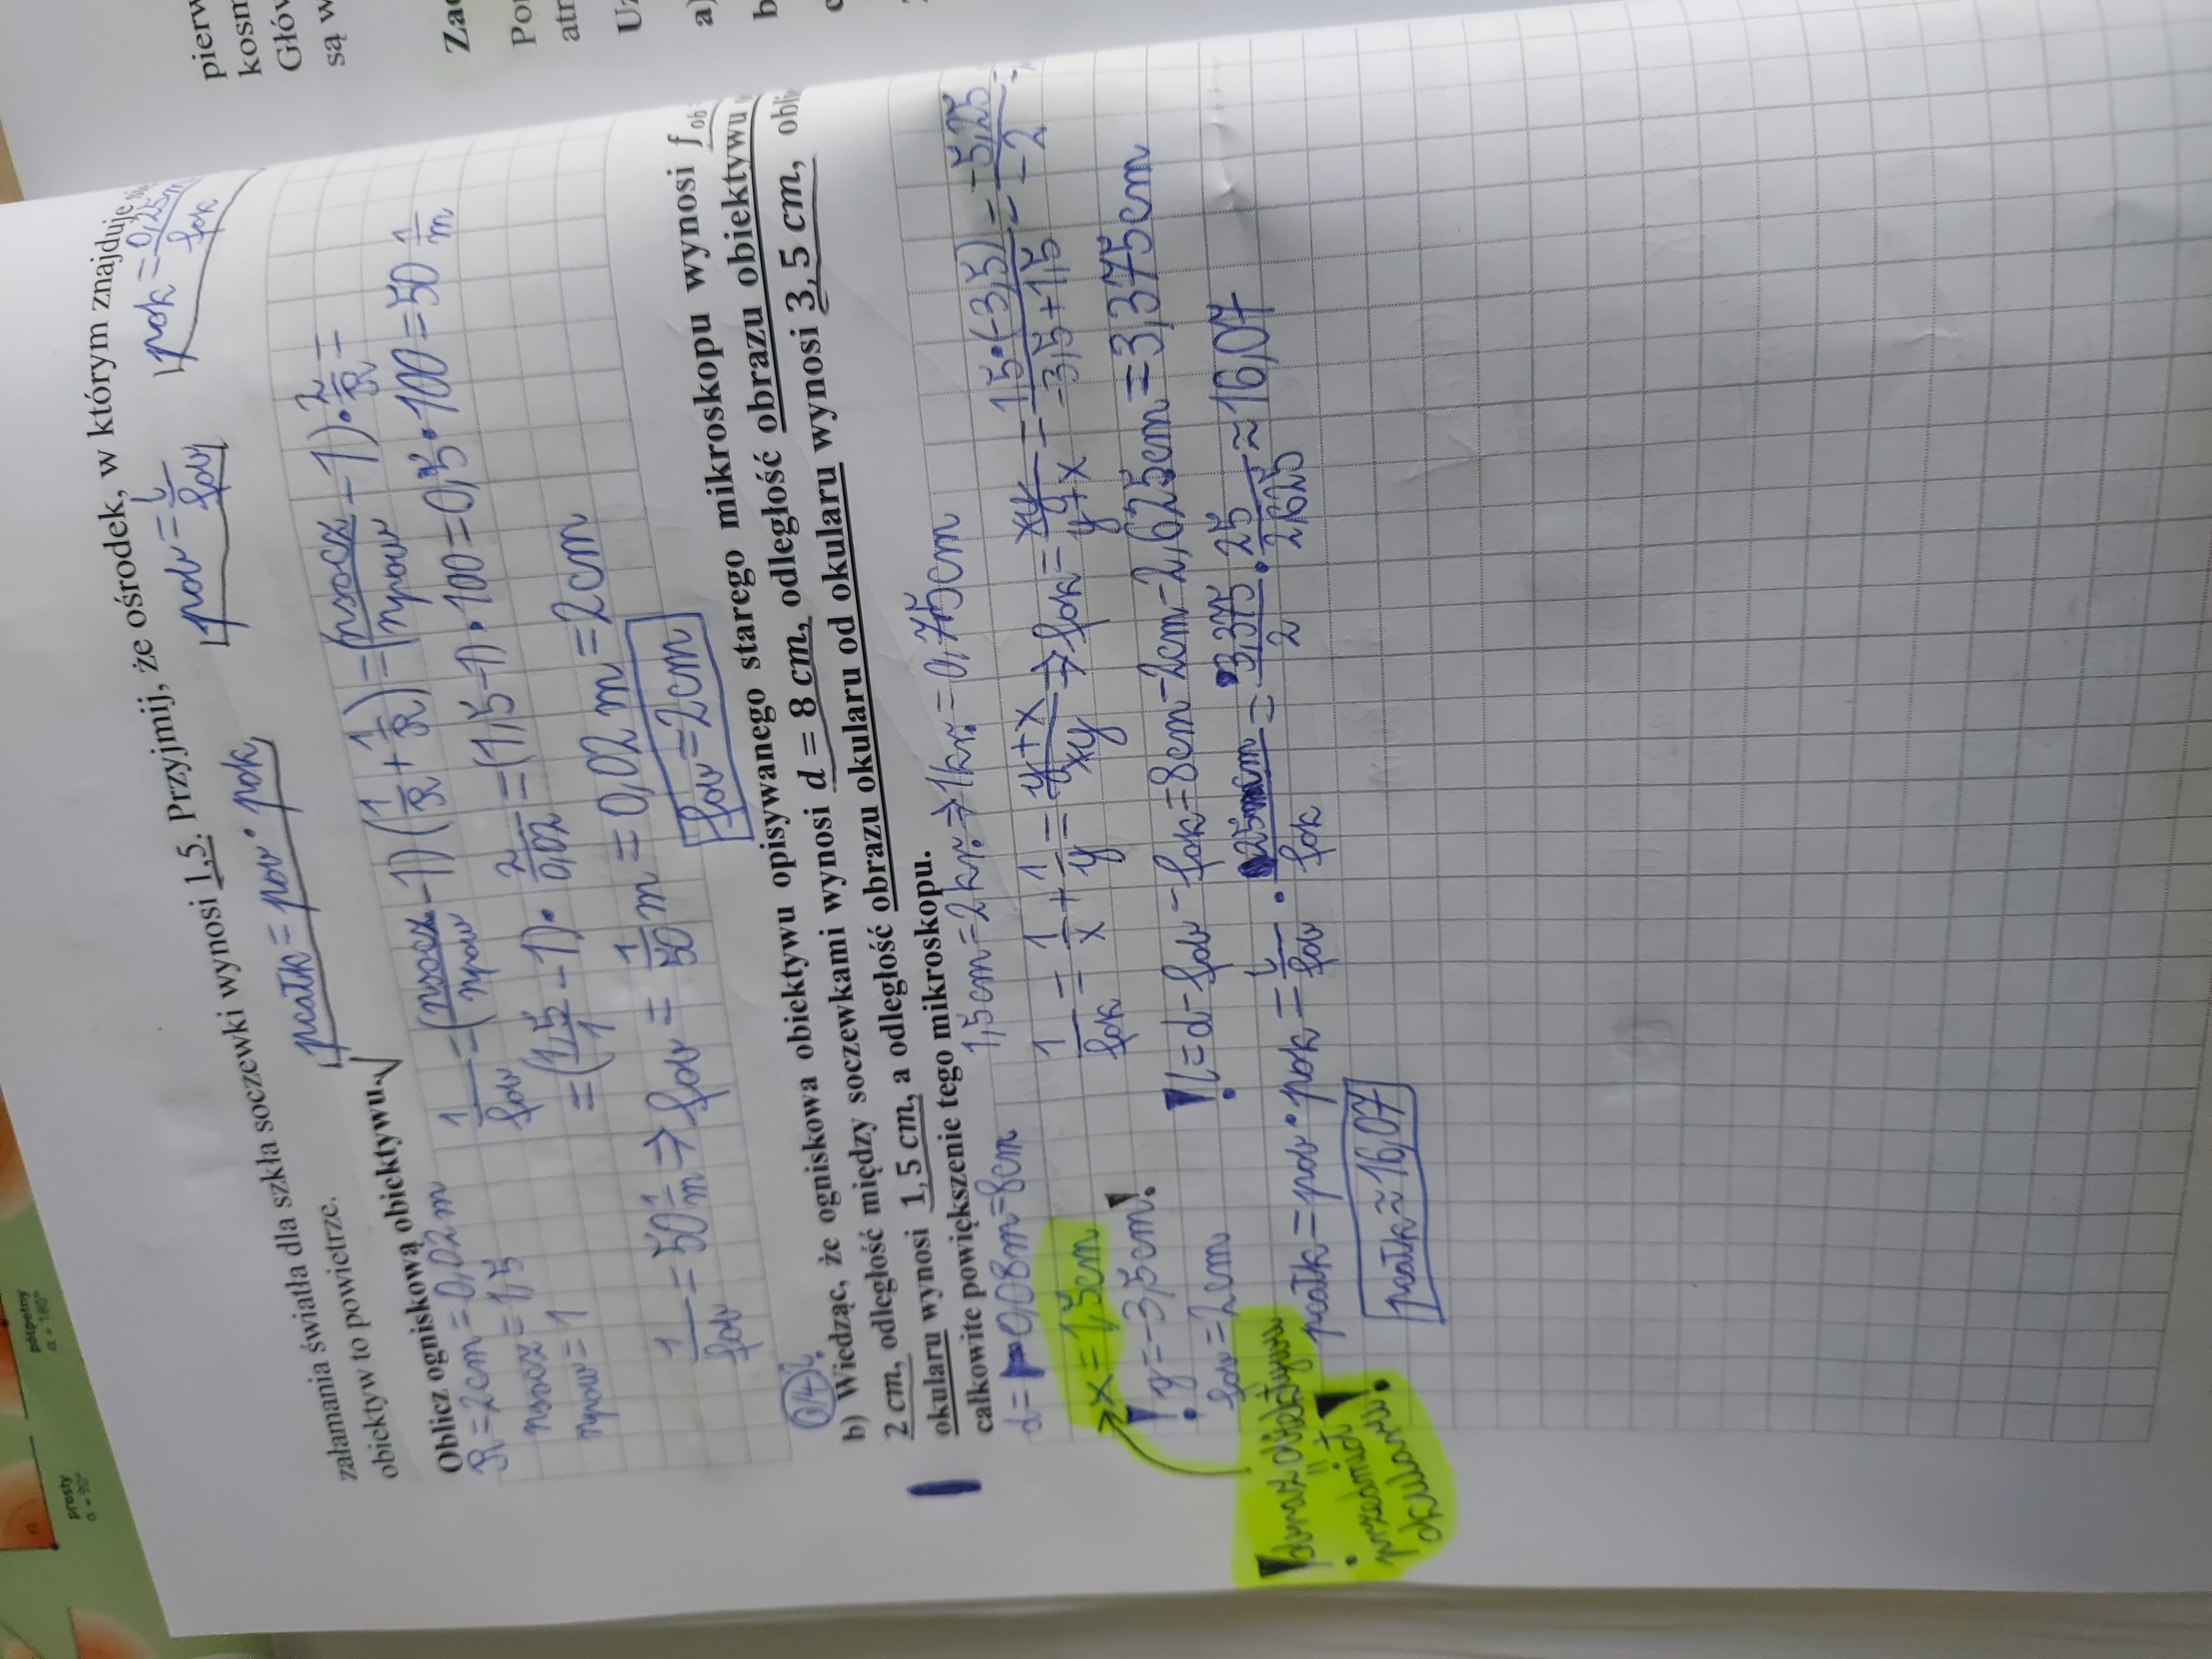 pierw
kosm
Głów
są w
Zad
Por
atr
Uz
a)
b
załamania światła dla szkła soczewki wynosi 1,5. Przyjmij, że ośrodek, w którym znajduje się
obiektyw to powietrze.
pcałk = pob · pok
pob = l/fob
pok = 0,25m/fok
Oblicz ogniskową obiektywu.
R = 2cm = 0,02m
nsocz = 1,5
npow = 1
1/fob = (nsocz/npow - 1)(1/R + 1/R) = (nsocz/npow - 1) · 2/R =
= (1,5/1 - 1) · 2/0,02 = (1,5-1) · 100 = 0,5 · 100 = 50 1/m
1/fob = 50 1/m → fob = 1/50 m = 0,02m = 2cm
fob = 2cm
b) Wiedząc, że ogniskowa obiektywu opisywanego starego mikroskopu wynosi fob
2 cm, odległość między soczewkami wynosi d = 8 cm, odległość obrazu obiektywu
okularu wynosi 1,5 cm, a odległość obrazu okularu od okularu wynosi 3,5 cm, obli
całkowite powiększenie tego mikroskopu.
d = 0,08m = 8cm
1,5cm = 2kr. → 1kr. = 0,75cm
x = 1,5cm
y = -3,5cm!
fob = 2cm
1/fok = 1/x + 1/y = y+x/xy → fok = xy/y+x = 1,5·(-3,5)/-3,5+1,5 = -5,25/-2 =
! l = d - fob - fok = 8cm - 2cm - 2,625cm = 3,375cm
pcałk = pob · pok = l/fob · 25cm/fok = 3,375/2 · 25/2,625 ≈ 16,07
pcałk ≈ 16,07
! obraz obiektywu
=
przedmiot
okularu!
prosty
α = 90°
półpełny
α = 180°